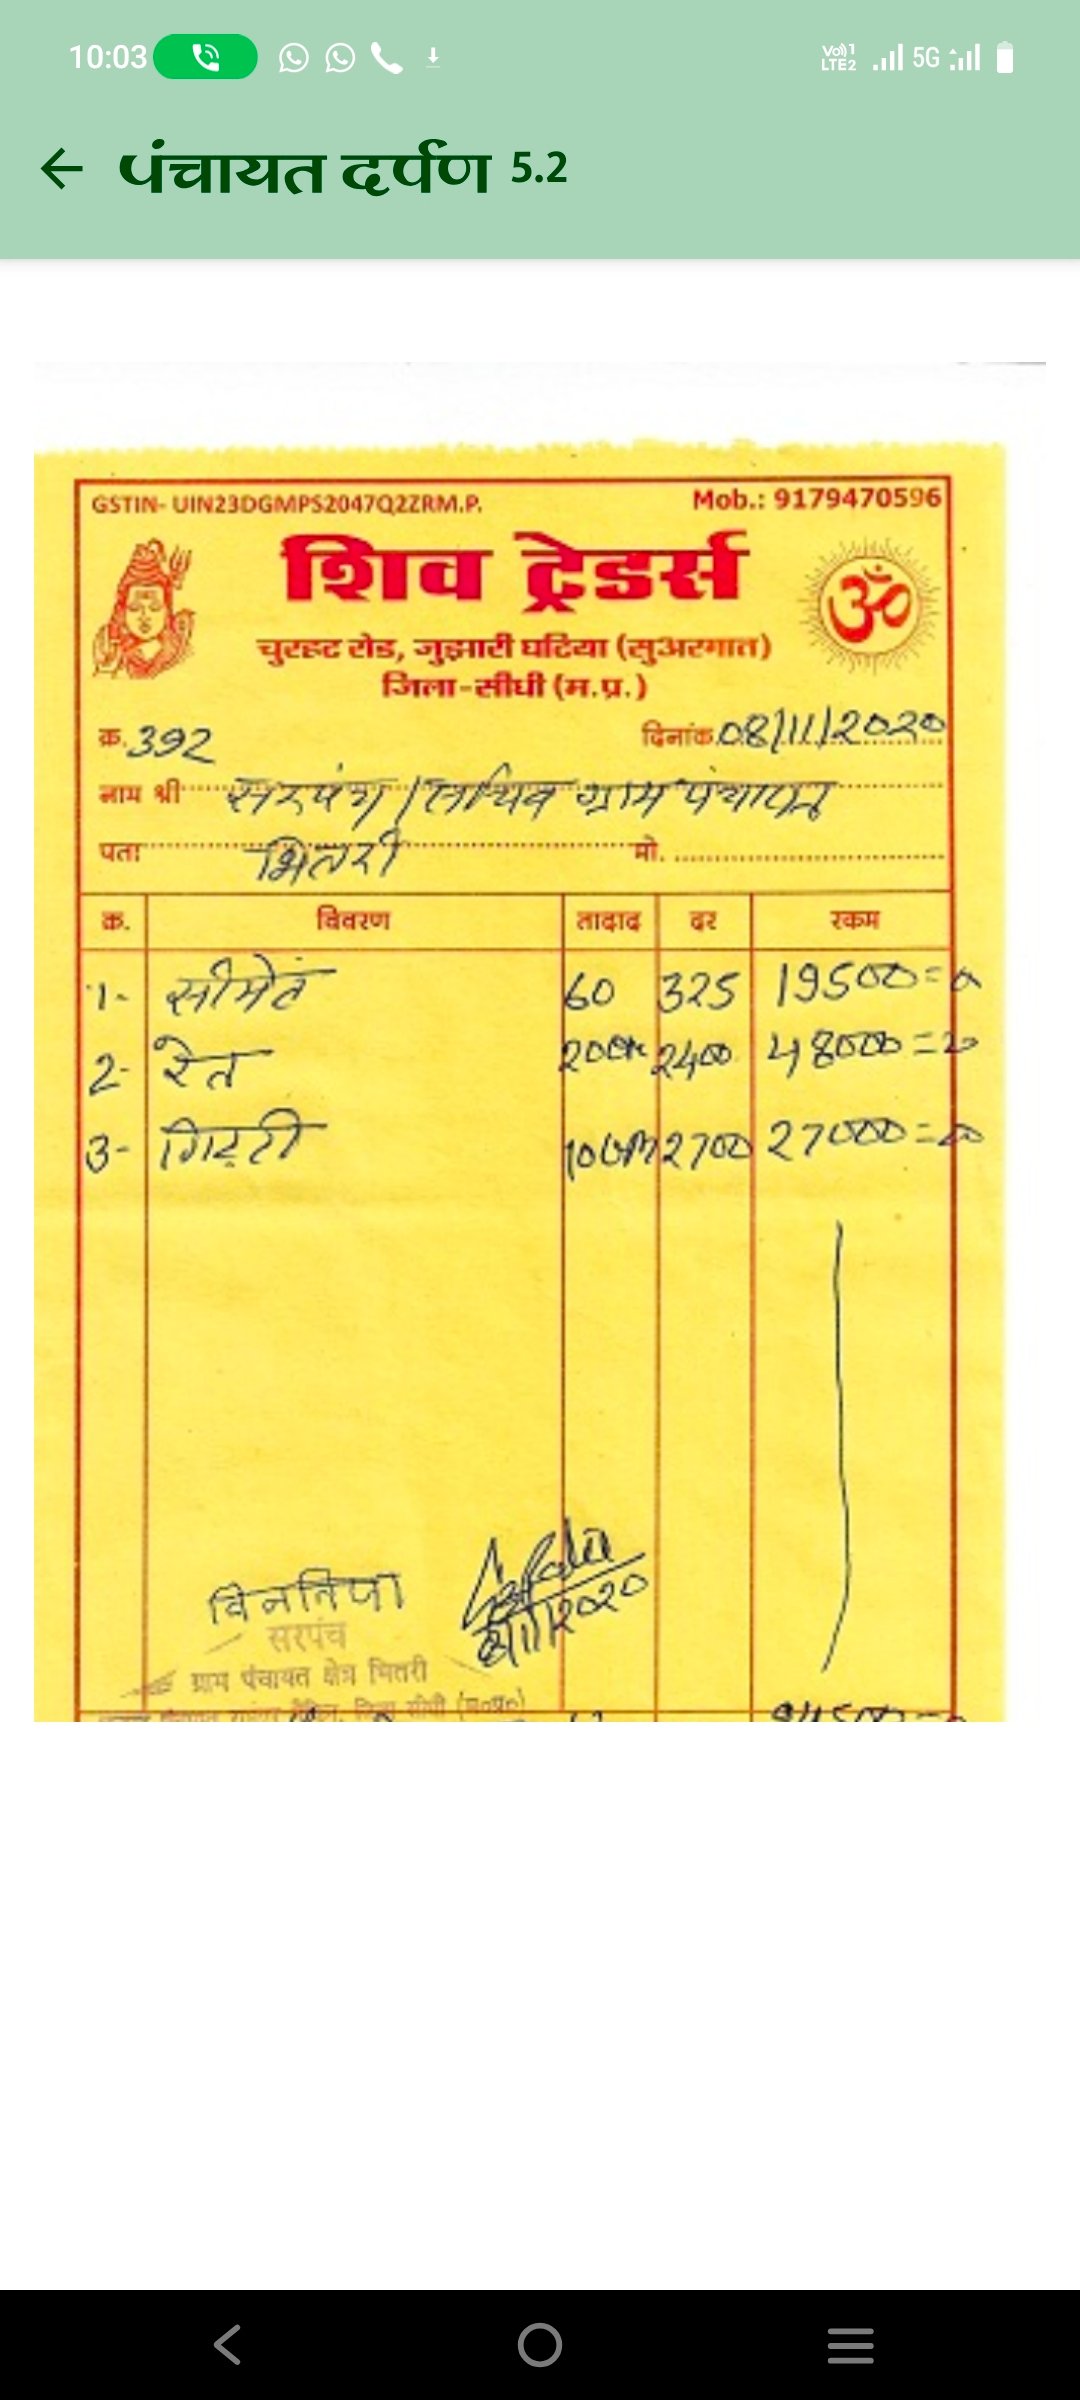 10:03
Vo)) 1
LTE2
5G
पंचायत दर्पण 5.2
GSTIN- UIN23DGMPS2047Q2ZRM.P.
Mob.: 9179470596
शिव ट्रेडर्स
चुरहट रोड, जुझारी घटिया (सुअरगात)
जिला-सीधी (म.प्र.)
क्र. 392
दिनांक 08/11/2020
नाम श्री सरपंच / सचिव ग्राम पंचायत
पता भितरी मो.
क्र. विवरण तादाद दर रकम
1- सीमेतं 60 325 19500=00
2- रेत 20 2400 48000=00
3- गिट्टी 10 2700 27000=00
सरपंच
ग्राम पंचायत क्षेत्र भितरी
जिला सीधी (म०प्र०)